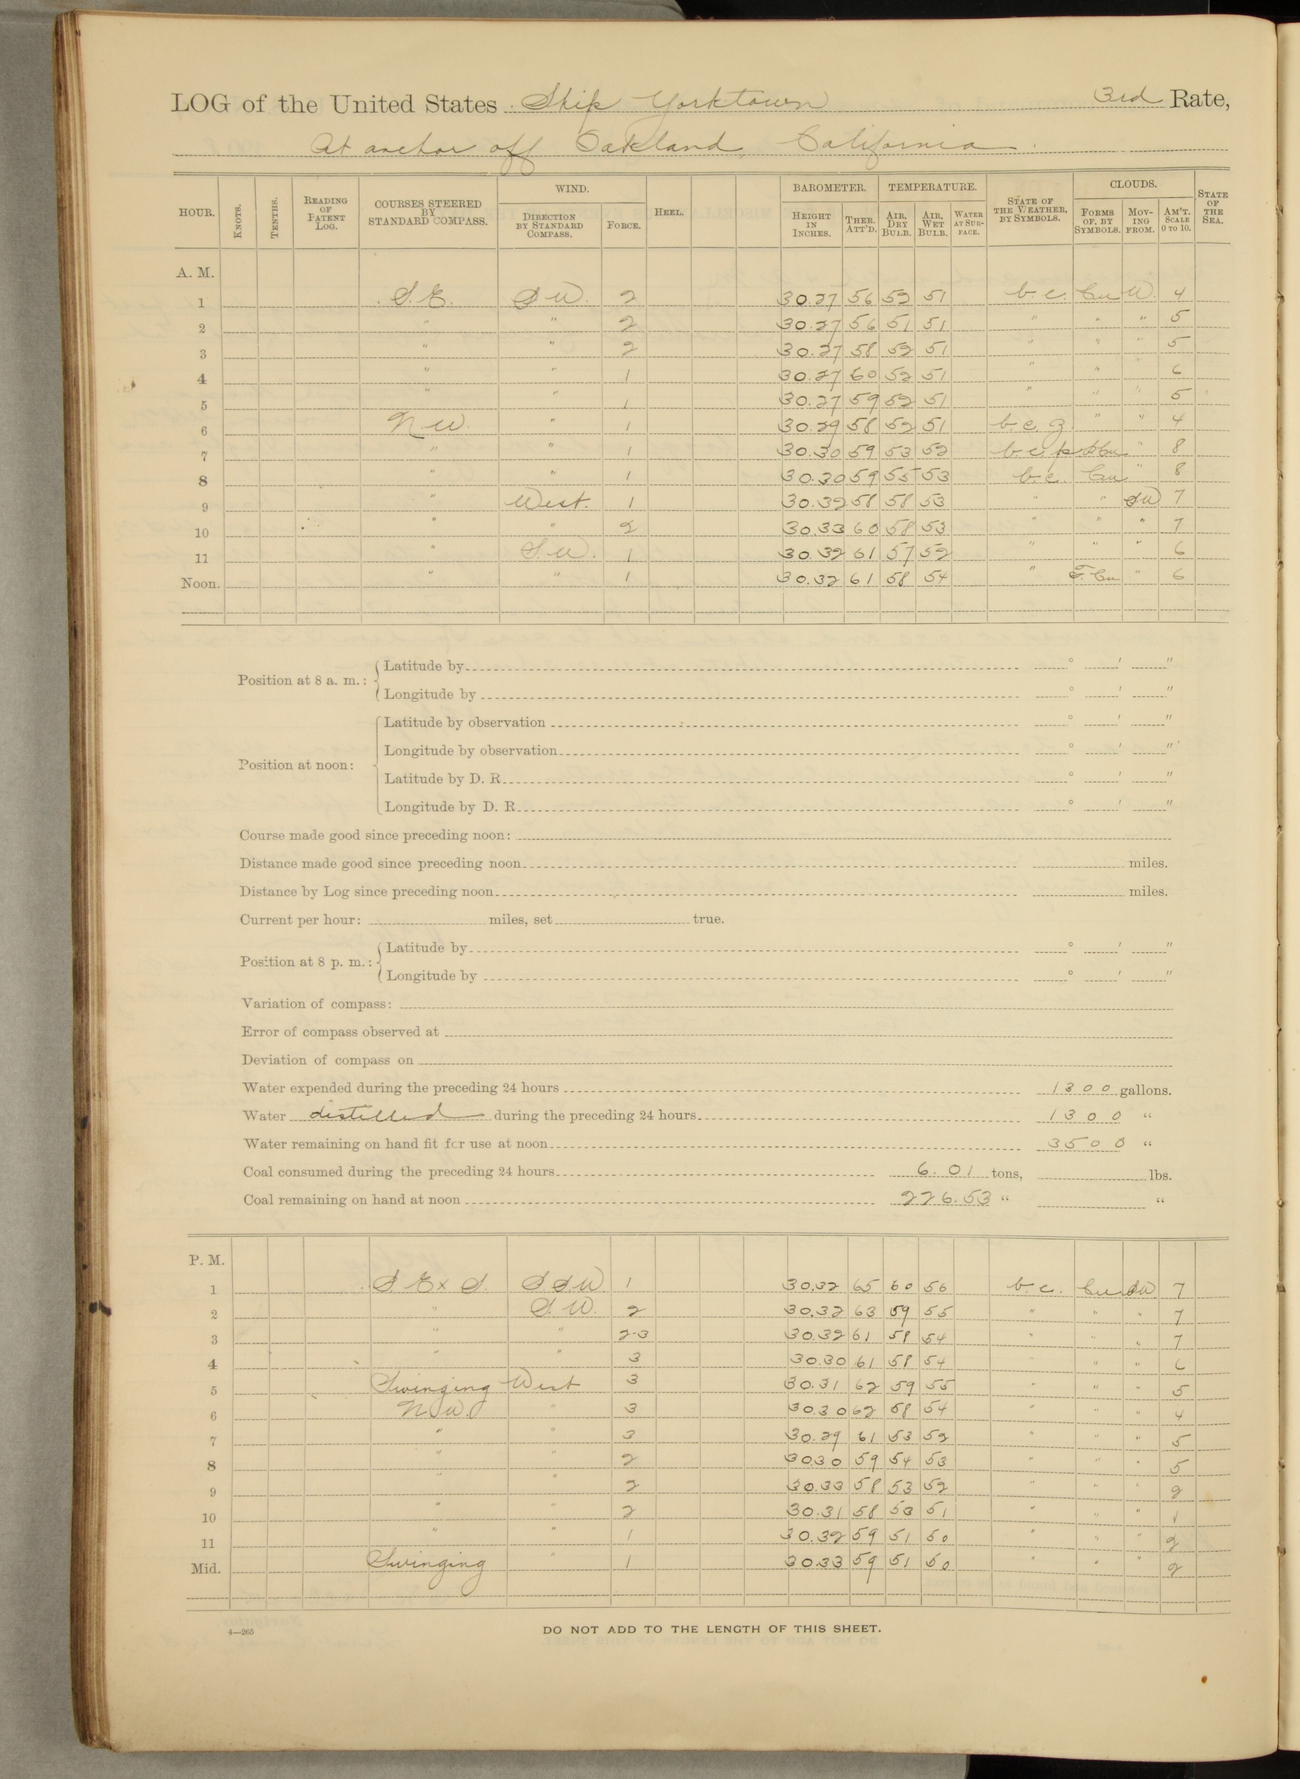 LOG of the United States Ship Yorktown 3rd Rate,
At anchor off Oakland, California.
HOUR. KNOTS. TENTHS. READING OF PATENT LOG. COURSES STEERED BY STANDARD COMPASS. WIND. DIRECTION BY STANDARD COMPASS. FORCE. HEEL. BAROMETER. HEIGHT IN INCHES. THER. ATT'D. TEMPERATURE. AIR, DRY BULB. AIR, WET BULB. WATER AT SURFACE. STATE OF THE WEATHER, BY SYMBOLS. CLOUDS. FORMS OF, BY SYMBOLS. MOVING FROM. AM'T. SCALE 0 TO 10. STATE OF THE SEA.
A. M.
1 S.E. SW. 2 30.27 56 52 51 b.c. Cu W. 4
2 " " 2 30.27 56 51 51 " " " 5
3 " " 2 30.27 58 52 51 " " " 5
4 " " 1 30.27 60 52 51 " " 6
5 " " 1 30.27 59 52 51 " " " 5
6 N W. " 1 30.29 58 52 51 b.c. z " " 4
7 " " 1 30.30 59 53 52 b.c.p S Cu " 8
8 " " 1 30.30 59 55 53 b.c. Cu " 8
9 " West. 1 30.32 58 58 53 " " SW 7
10 " " 2 30.33 60 58 53 " " " 7
11 " S.W. 1 30.32 61 57 52 " " " 6
Noon. " " 1 30.32 61 58 54 " Cu " 6
Position at 8 a. m.: Latitude by ° ' "
Longitude by ° ' "
Position at noon: Latitude by observation ° ' "
Longitude by observation ° ' "
Latitude by D. R. ° ' "
Longitude by D. R. ° ' "
Course made good since preceding noon:
Distance made good since preceding noon miles.
Distance by Log since preceding noon miles.
Current per hour: miles, set true.
Position at 8 p. m.: Latitude by ° ' "
Longitude by ° ' "
Variation of compass:
Error of compass observed at
Deviation of compass on
Water expended during the preceding 24 hours 1300 gallons.
Water distilled during the preceding 24 hours 1300 "
Water remaining on hand fit for use at noon 3500 "
Coal consumed during the preceding 24 hours 6.01 tons, lbs.
Coal remaining on hand at noon 226.53 " "
P. M.
1 S E x S. S S W 1 30.32 65 60 56 b.c. Cu SW 7
2 " S.W. 2 30.32 63 59 55 " " " 7
3 " " 2-3 30.32 61 58 54 " " " 7
4 " " 3 30.30 61 58 54 " " " 6
5 Swinging West 3 30.31 62 59 55 " " " 5
6 N.W. " 3 30.30 62 58 54 " " " 4
7 " " 3 30.29 61 53 52 " " " 5
8 " " 2 30.30 59 54 53 " " " 5
9 " " 2 30.33 58 53 52 " " " 2
10 " " 2 30.31 58 53 51 " " " 1
11 " " 1 30.32 59 51 50 " " " 2
Mid. Swinging " 1 30.33 59 51 50 " " " 2
4—265
DO NOT ADD TO THE LENGTH OF THIS SHEET.